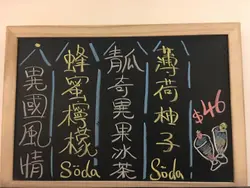 異國風情
蜂蜜檸檬
Söda
青瓜奇異果冰茶
薄荷柚子
Söda
$46